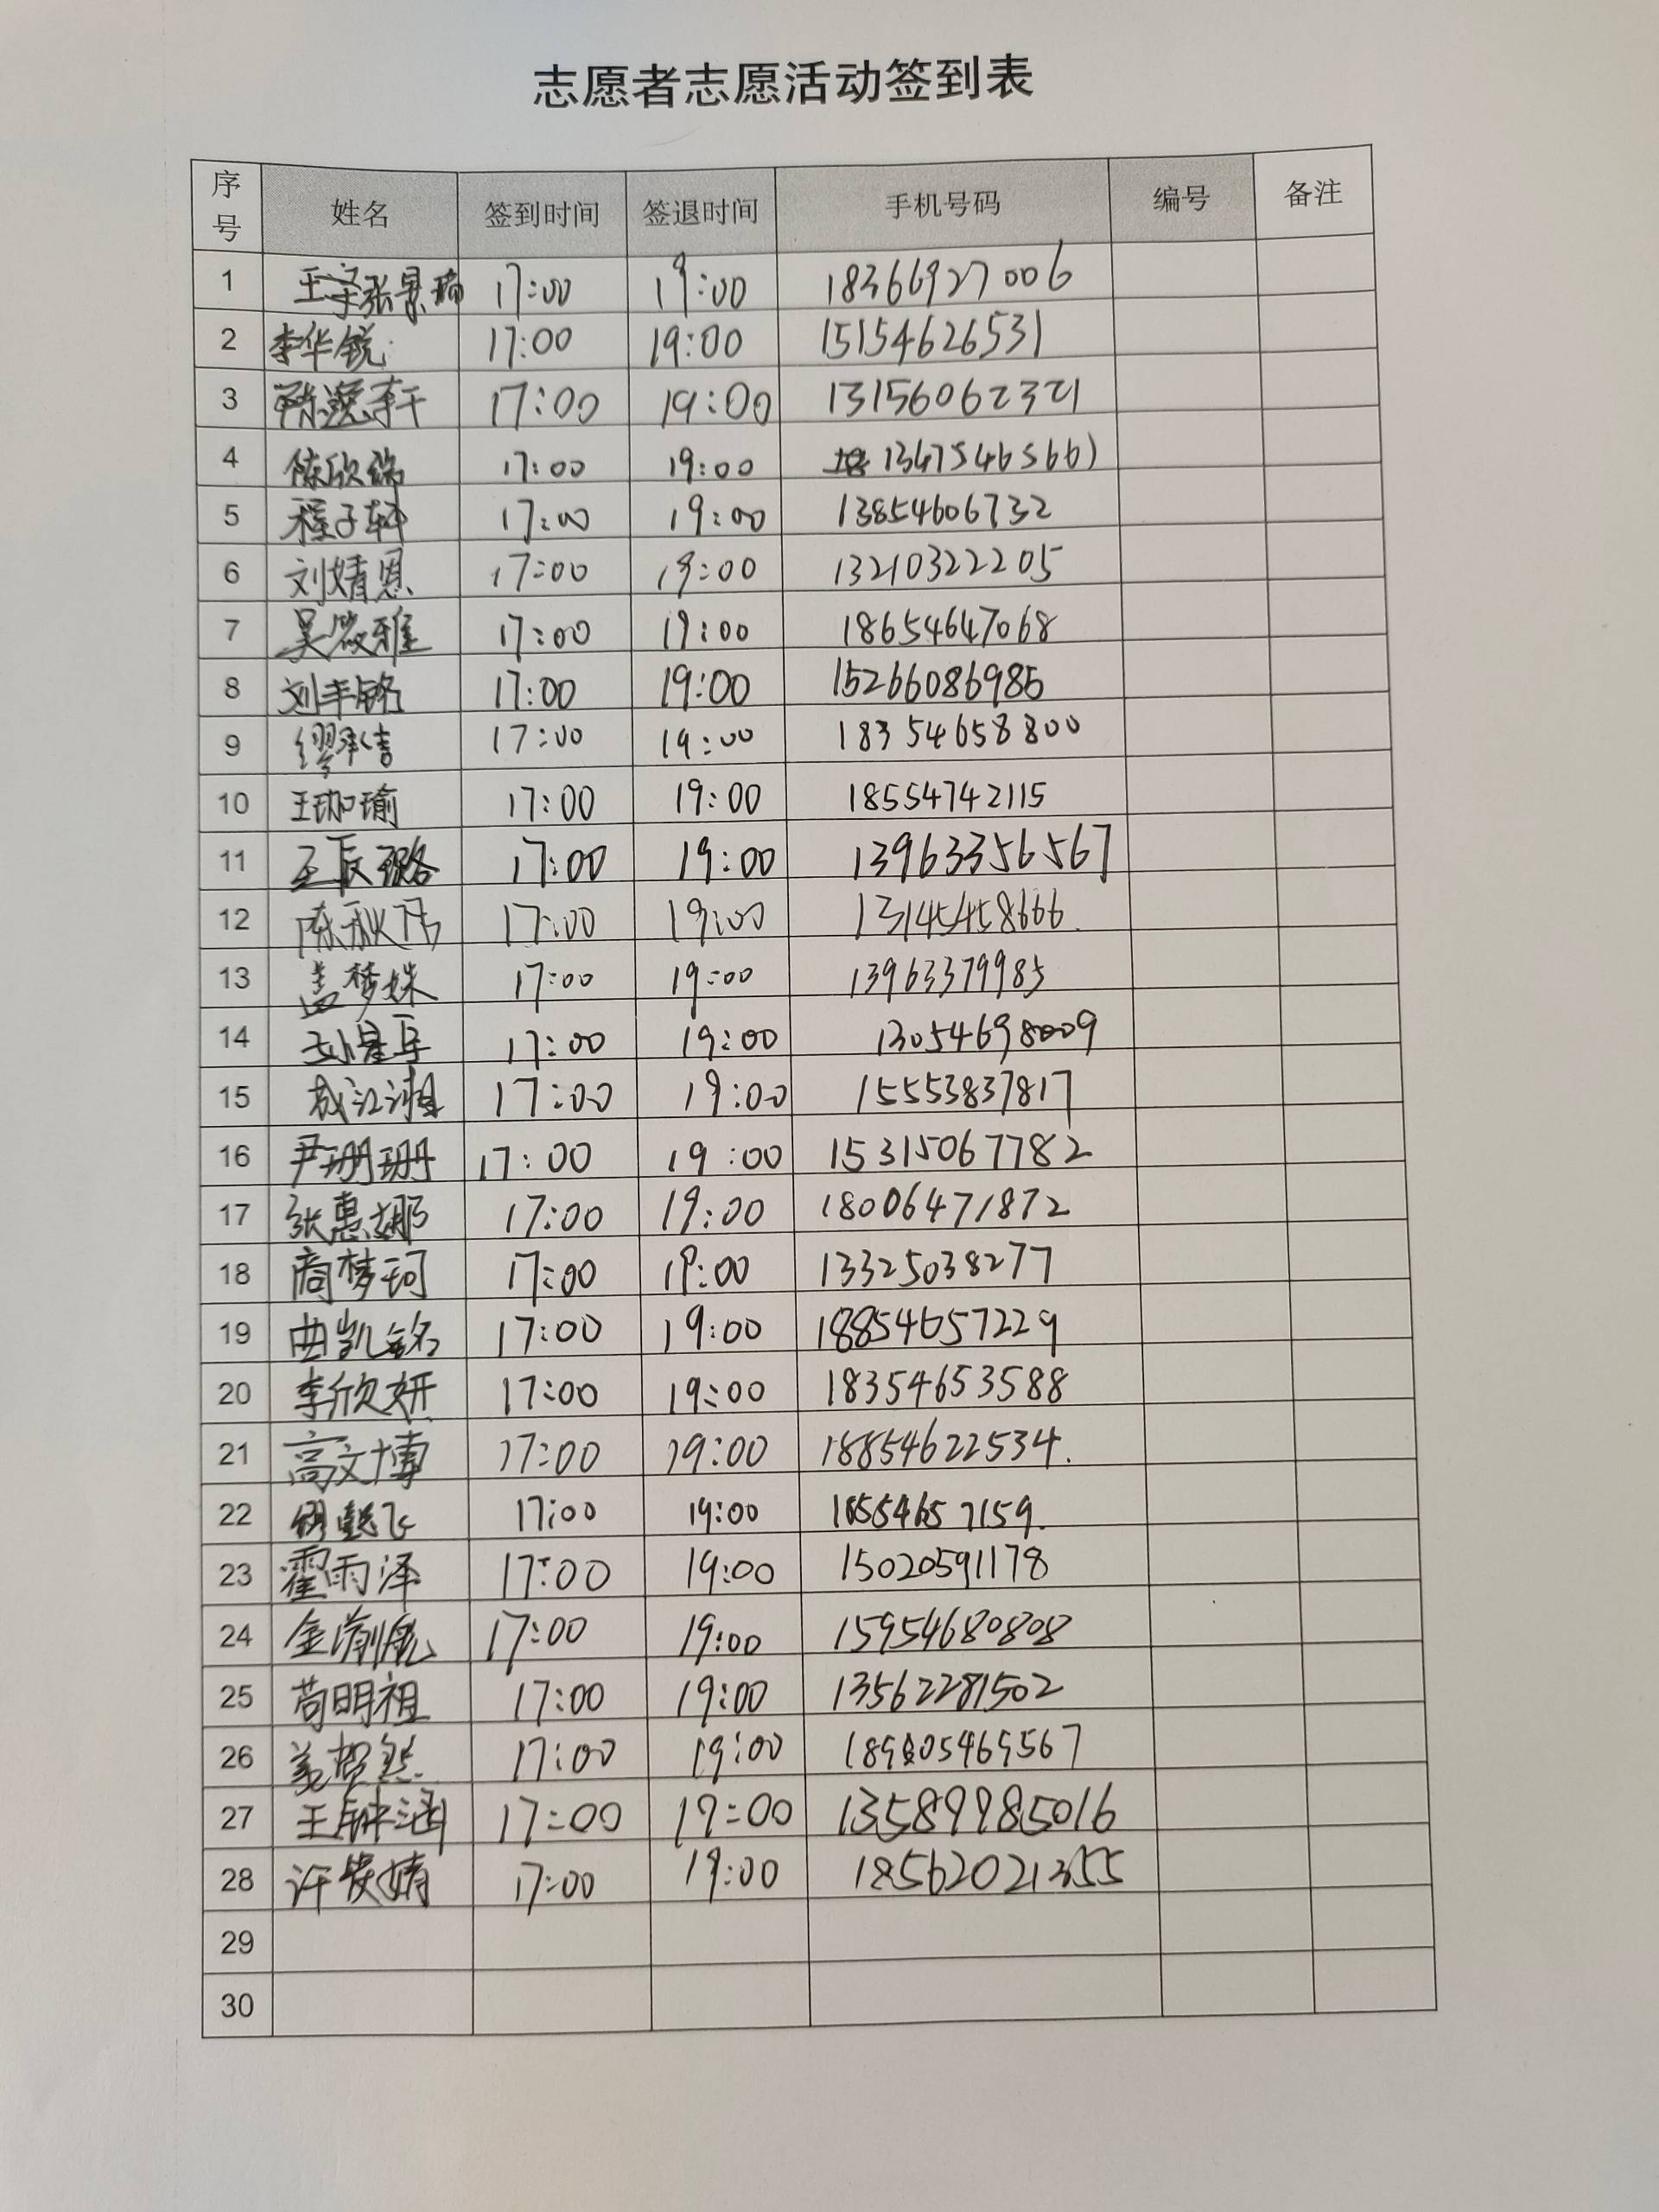 志愿者志愿活动签到表
序号 姓名 签到时间 签退时间 手机号码 编号 备注
1 张景瑜 17:00 19:00 18366927006
2 李华锐 17:00 19:00 15154626531
3 陈逸轩 17:00 19:00 13156062321
4 陈欣瑞 17:00 19:00 13475465661
5 程子轩 17:00 19:00 13854606732
6 刘婧恩 17:00 19:00 13210322205
7 吴筱雅 17:00 19:00 18654647068
8 刘丰铭 17:00 19:00 15266086985
9 缪承吉 17:00 19:00 18354658800
10 王珈瑜 17:00 19:00 18554742115
11 王辰璐 17:00 19:00 13963356567
12 陈秋 17:00 19:00 13145458666
13 盖梦姝 17:00 19:00 13963379985
14 孙星宇 17:00 19:00 13054698009
15 成江湘 17:00 19:00 15553837817
16 尹珊珊 17:00 19:00 15315067782
17 张惠娜 17:00 19:00 18006471872
18 商梦珂 17:00 19:00 13325038277
19 曲凯铭 17:00 19:00 18854657229
20 李欣妍 17:00 19:00 18354653588
21 高文博 17:00 19:00 18854622534.
22 17:00 19:00
23 霍雨泽 17:00 19:00 15020591178
24 金 17:00 19:00 15954680808
25 苟明祖 17:00 19:00 13562281502
26 姜贺然 17:00 19:00
27 王钟涵 17:00 19:00 13589985016
28 许 婧 17:00 19:00 18562021355
29
30